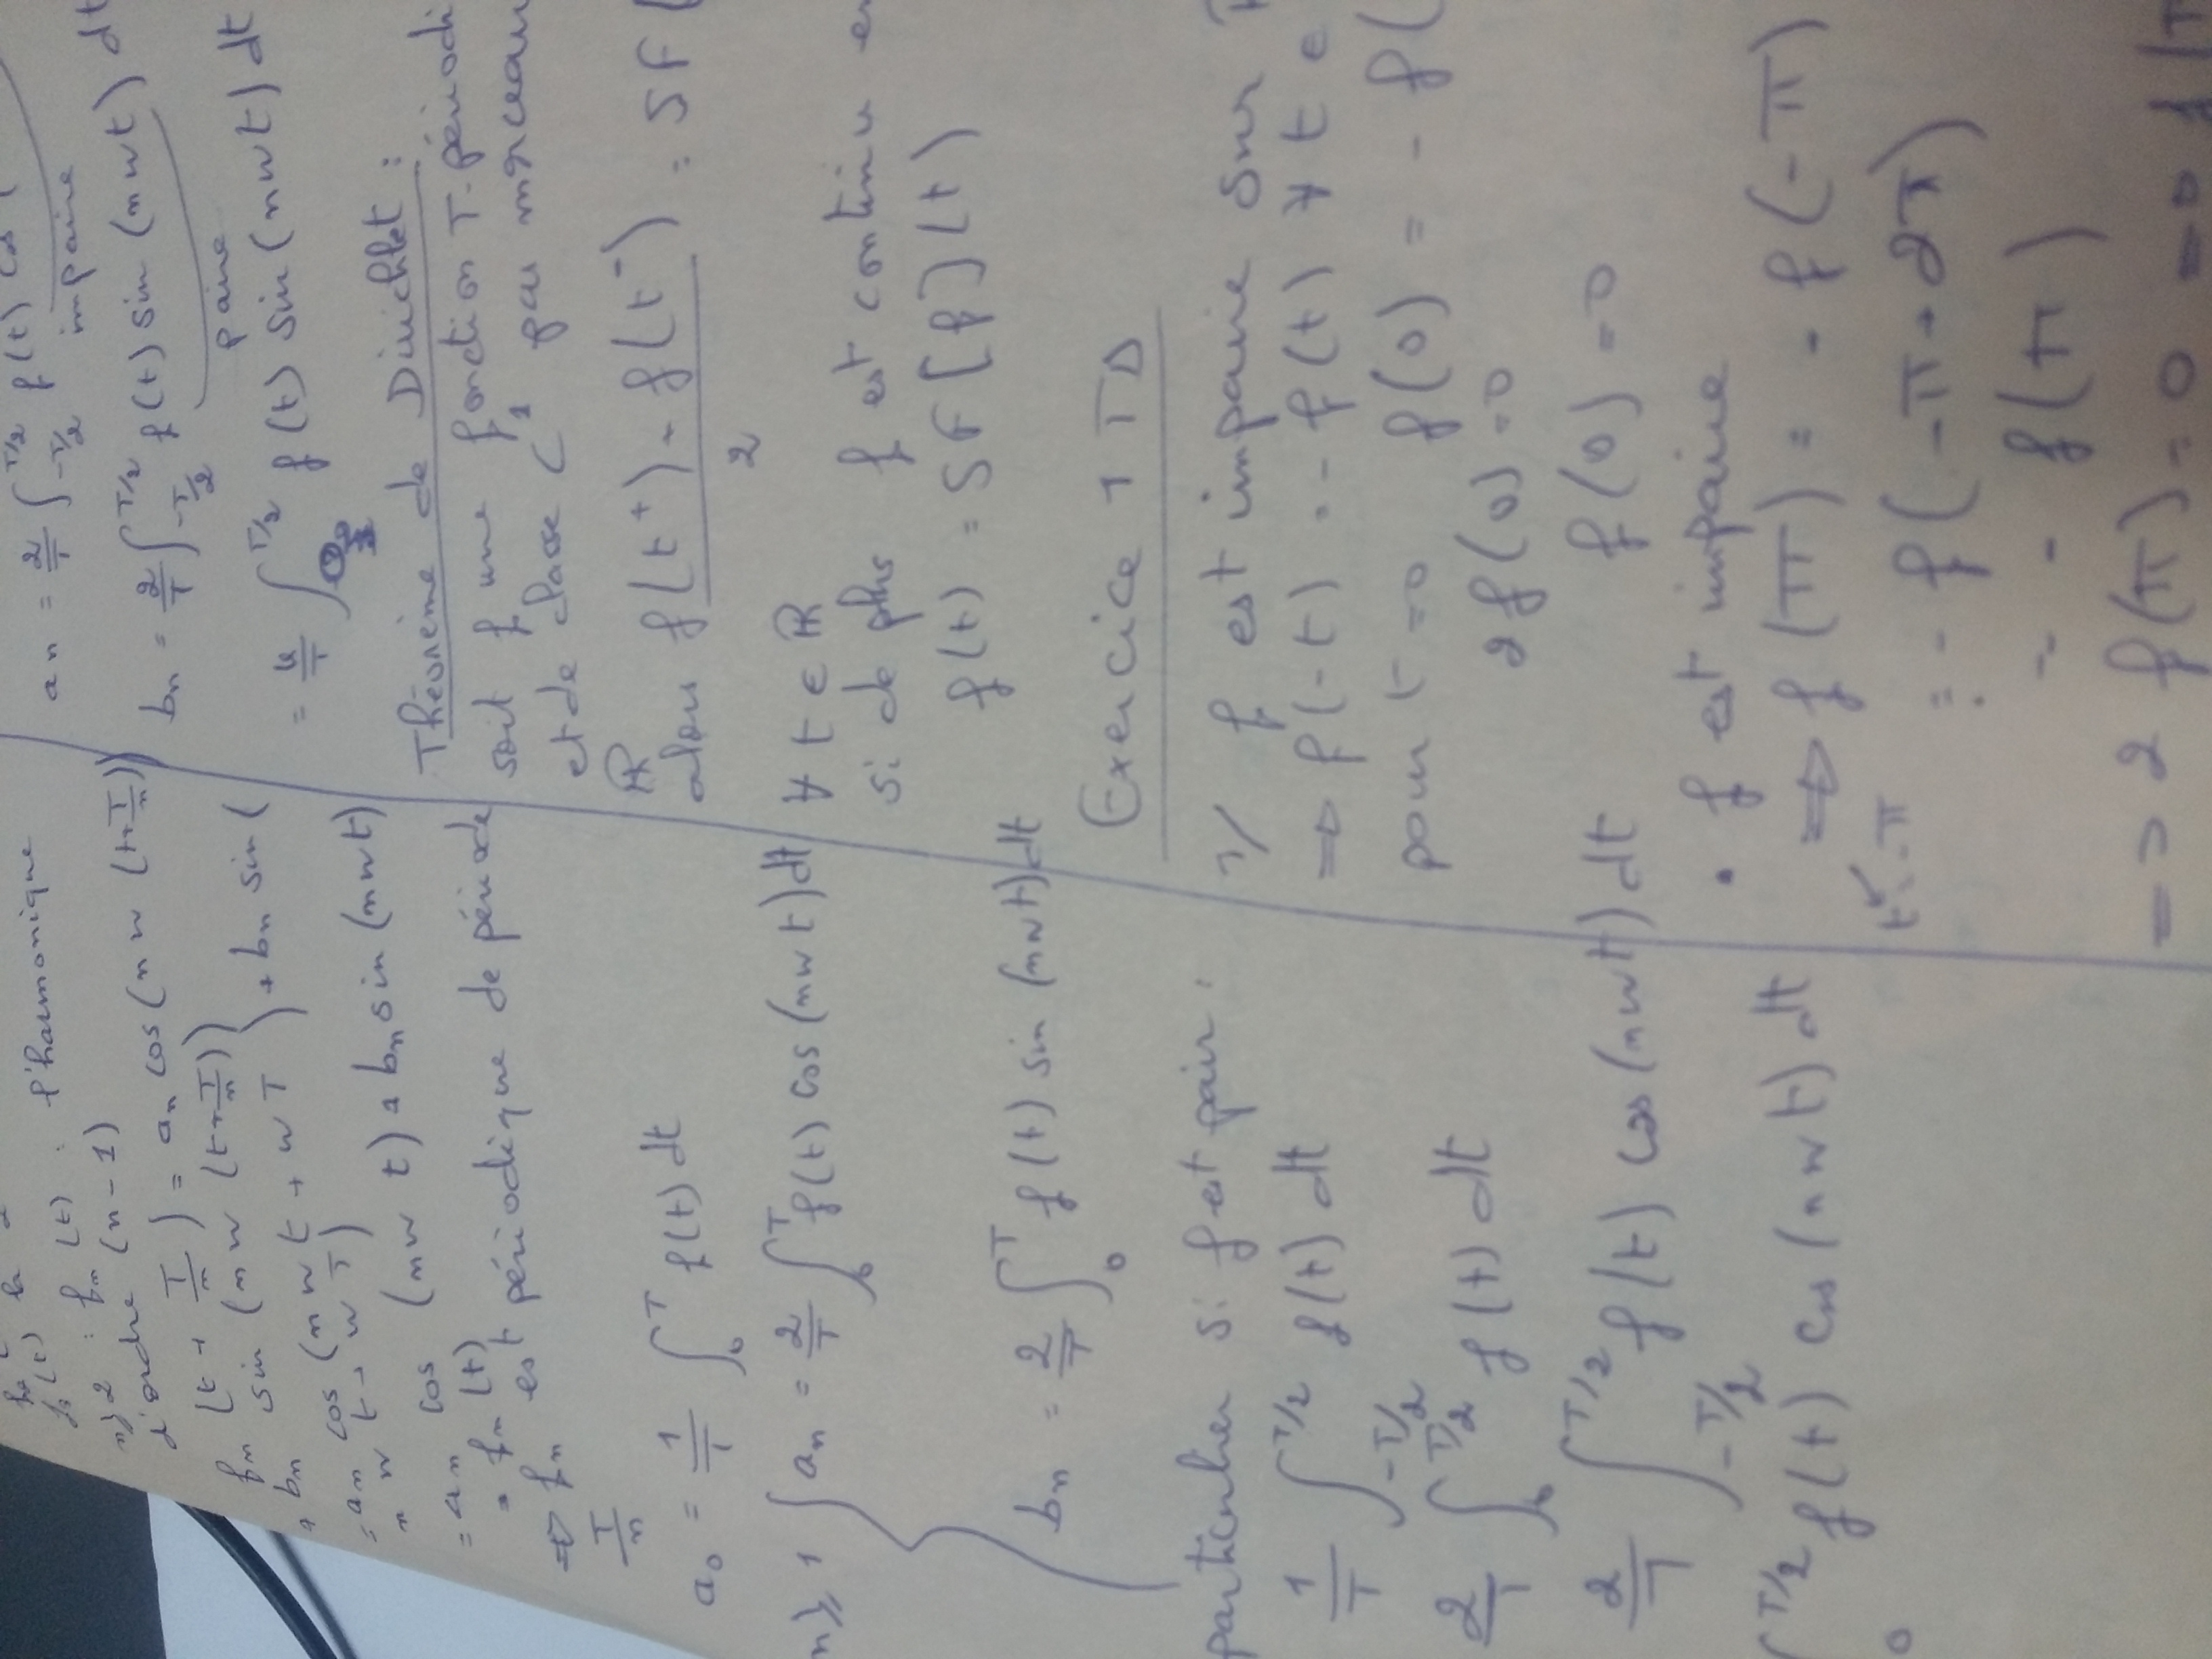 f₁(t) la
n⩾2 : fn (t) : l'harmonique
d'ordre (n-1)
fn (t + T/n) = an cos(nw (t+T/n))
+ bn sin (nw (t+T/n))
= an cos (nwt + wT) + bn sin (
nwt + wT)
= an cos (nwt) + bn sin (nwt)
= fn (t)
⇒ fn est périodique de période
T/n
a₀ = 1/T ∫₀^T f(t) dt
n⩾1 { an = 2/T ∫₀^T f(t) cos (nwt) dt
bn = 2/T ∫₀^T f(t) sin (nwt) dt
particulier si f est pair :
1/T ∫_{-T/2}^{T/2} f(t) dt
2/T ∫₀^{T/2} f(t) dt
2/T ∫_{-T/2}^{T/2} f(t) cos (nwt) dt
∫₀^{T/2} f(t) cos (nwt) dt
an = 2/T ∫_{-T/2}^{T/2} f(t) cos (
impaire
bn = 2/T ∫_{-T/2}^{T/2} f(t) sin (nwt) dt
paire
= 4/T ∫₀^{T/2} f(t) sin (nwt) dt
Théorème de Dirichlet :
soit f une fonction T-périodi
et de classe C¹ par morceau
ℝ
alors (f(t⁺) + f(t⁻))/2 = SF (
∀ t ∈ ℝ
si de plus f est continue en
f(t) = SF [f] (t)
Exercice 1 TD
1/ f est impaire sur ℝ
⇒ f(-t) = - f(t) ∀ t ∈
pour t = 0 f(0) = - f(
2f(0) = 0
f(0) = 0
• f est impaire
⇒ f(π) = - f(-π)
t = -π
= - f(-π + 2π)
= - f(π)
⇒ 2 f(π) = 0 ⇒ f(π